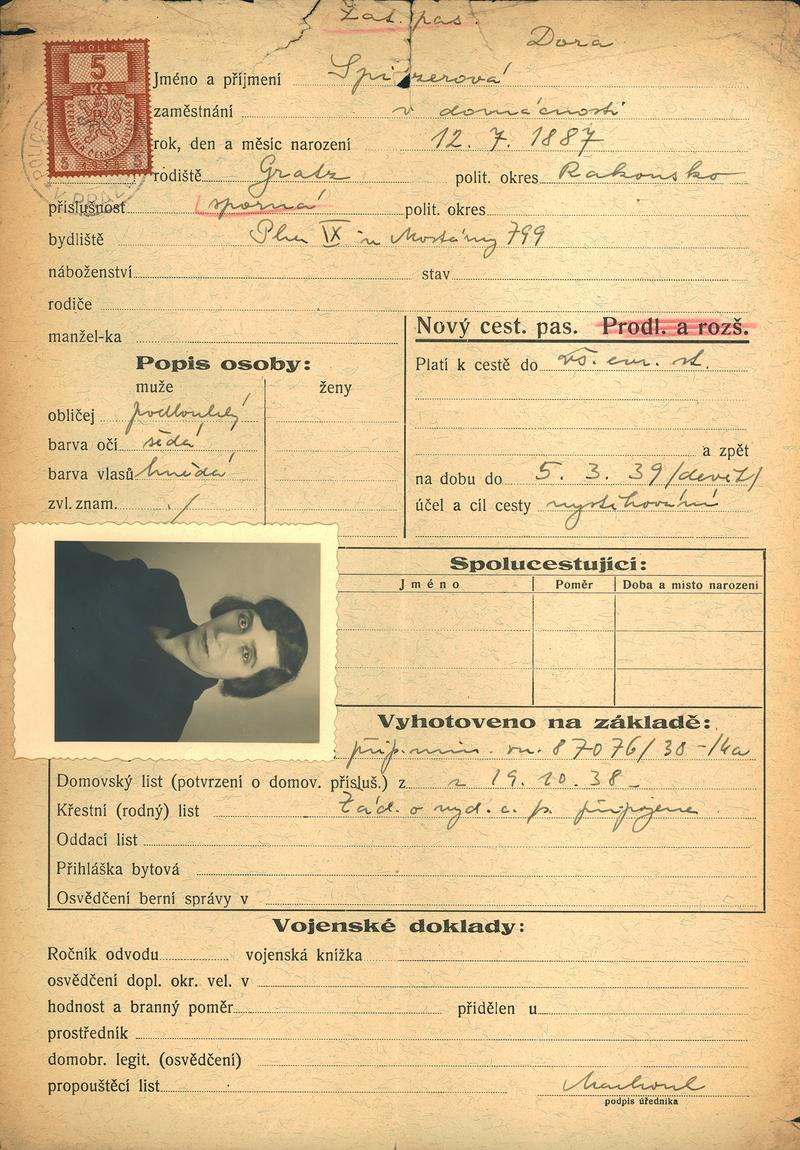 Zat. pas.
Dora
KOLEK
5
Kč
Jméno a příjmení Spitzerová
zaměstnání v domácnosti
rok, den a měsíc narození 12. 7. 1887
rodiště Gratz polit. okres Rakousko
příslušnost sporná polit. okres
bydliště Praha IX 799
náboženství stav
rodiče
manžel-ka
Nový cest. pas. Prodl. a rozš.
Popis osoby:
Platí k cestě do vš. eur. st.
muže ženy
obličej podlouhlý
barva očí šedá
a zpět
barva vlasů hnědá
na dobu do 5. 3. 39 /devět/
zvl. znam. /
účel a cíl cesty vystěhování
Spolucestující:
Jméno Poměr Doba a místo narození
Vyhotoveno na základě:
příp. min. vn. 87076/38-14a
Domovský list (potvrzení o domov. přísluš.) z z 19. 10. 38
Křestní (rodný) list Žád. o vyd. c. p. připojena
Oddací list
Přihláška bytová
Osvědčení berní správy v
Vojenské doklady:
Ročník odvodu vojenská knížka
osvědčení dopl. okr. vel. v
hodnost a branný poměr přidělen u
prostředník
domobr. legit. (osvědčení)
propouštěcí list
podpis úředníka